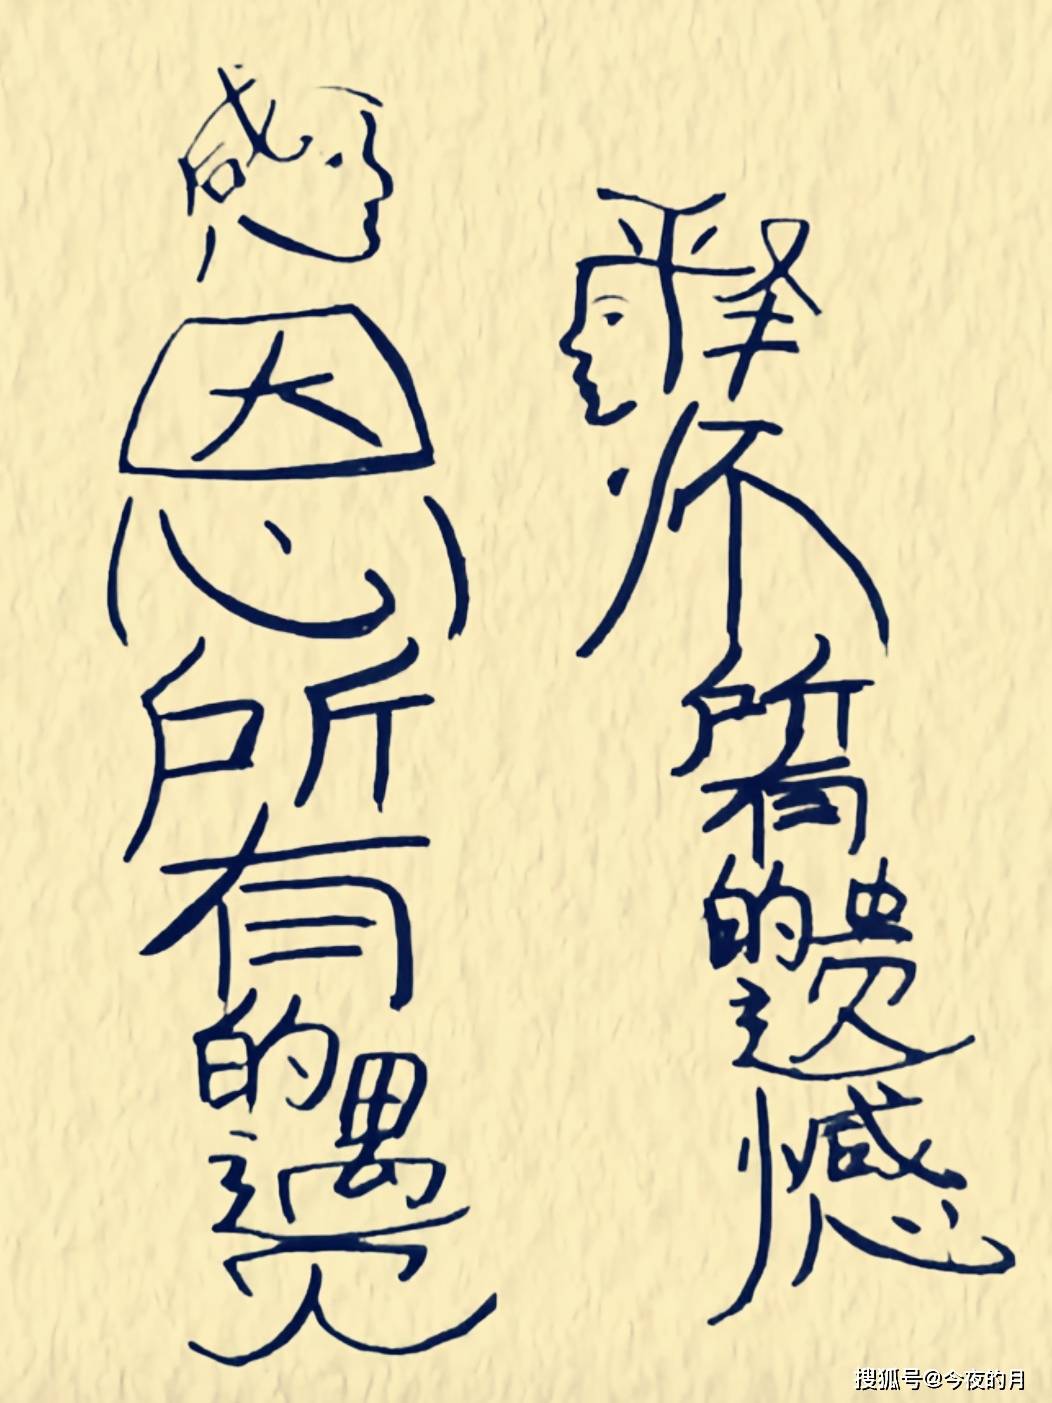 感恩所有的遇见
释怀所有的遗憾
搜狐号@今夜的月